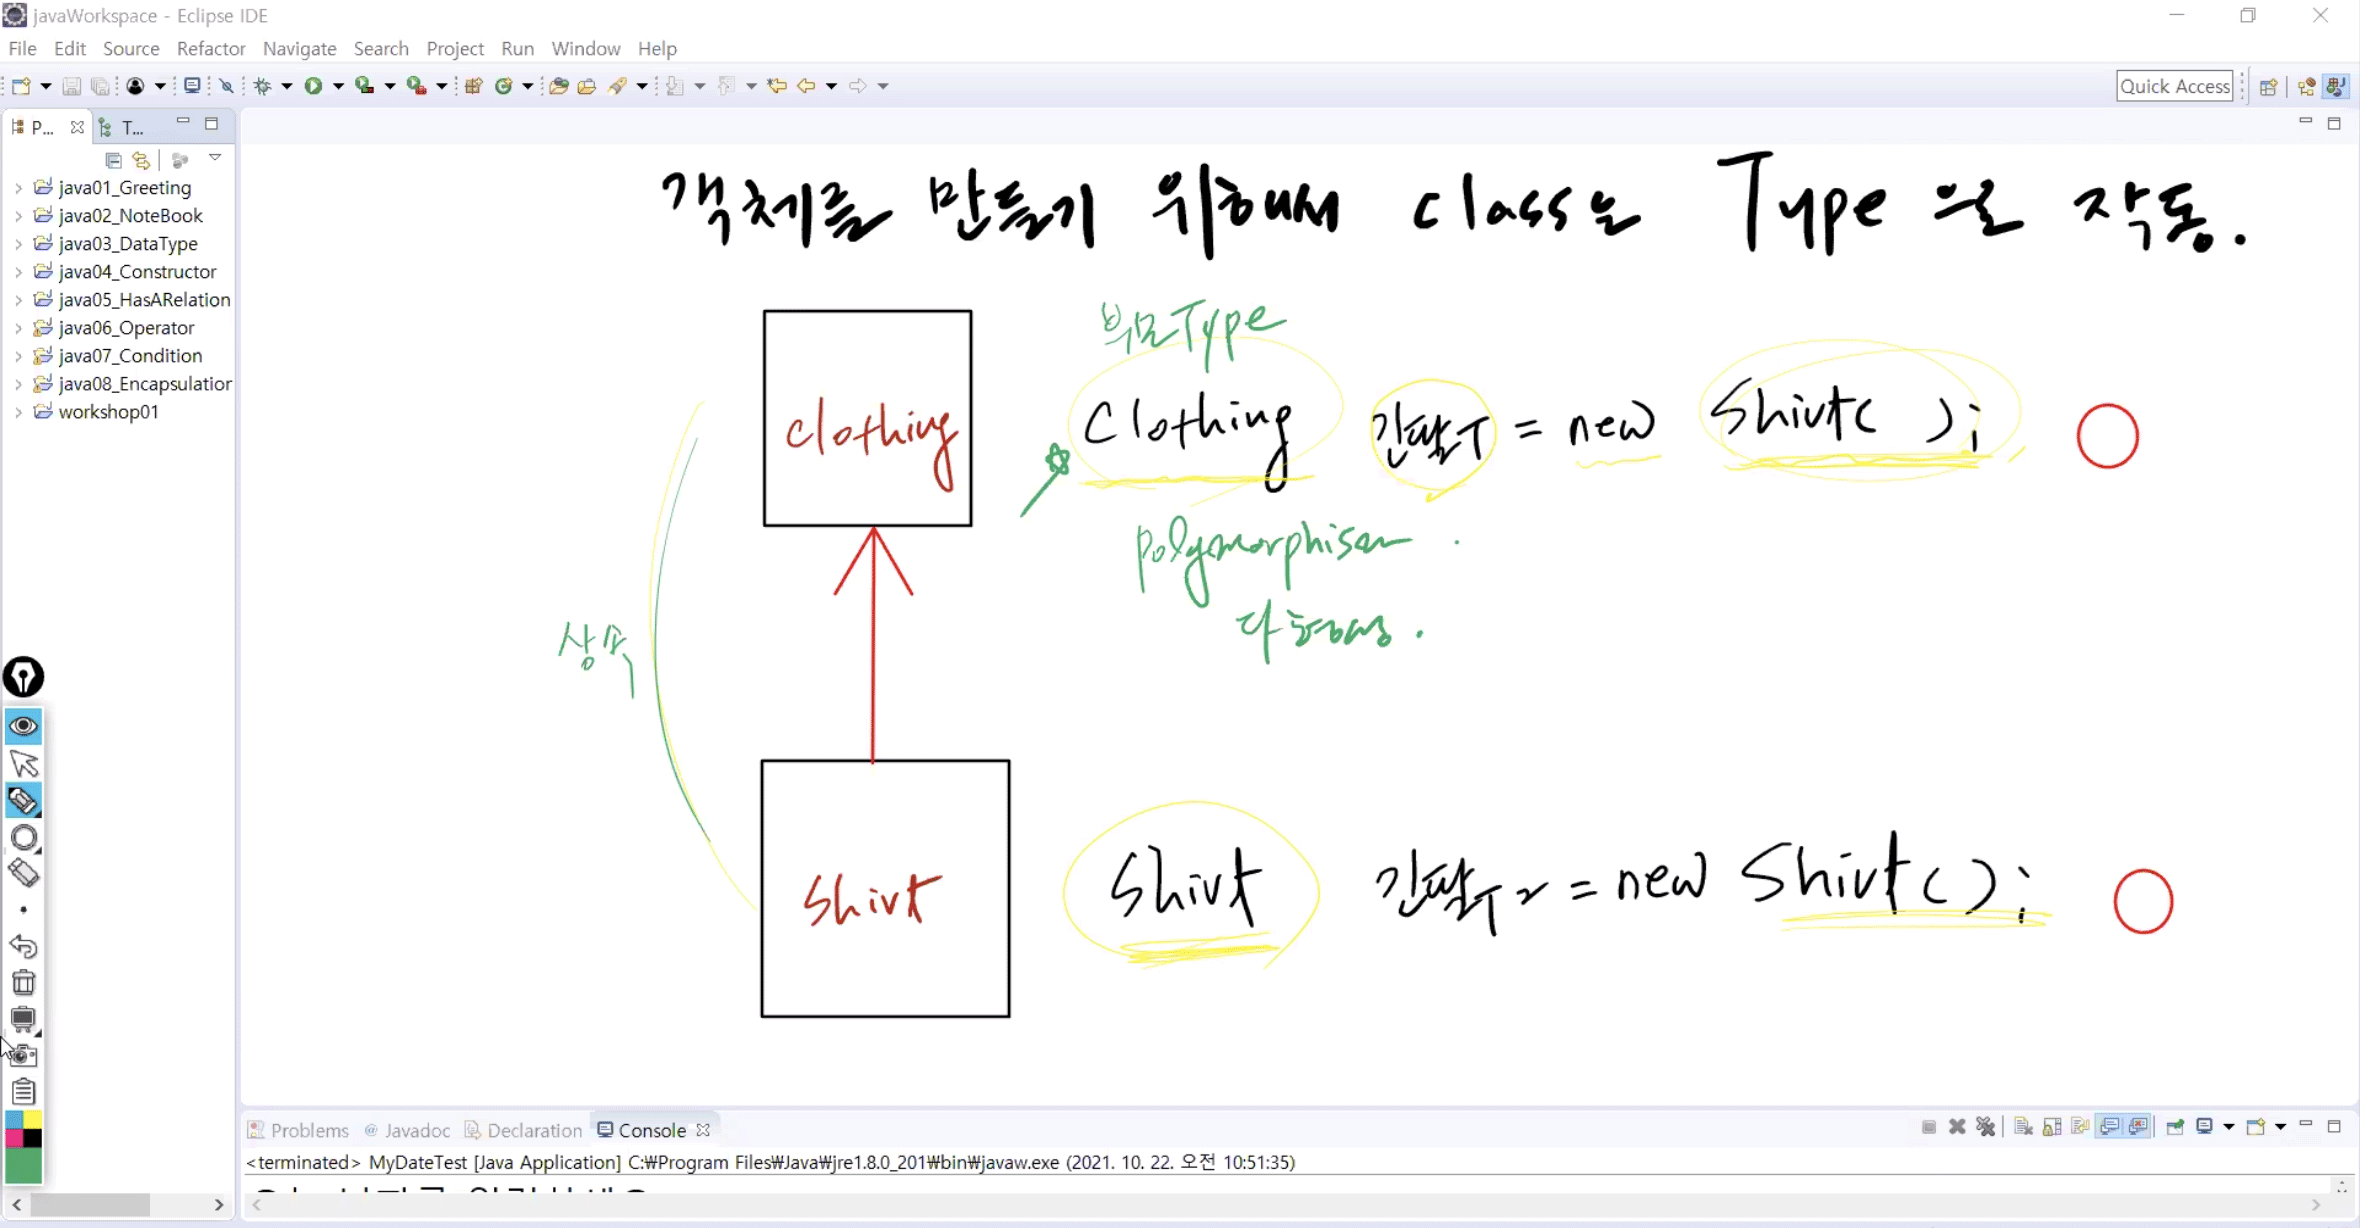 javaWorkspace - Eclipse IDE
File Edit Source Refactor Navigate Search Project Run Window Help
Quick Access
P... T...
java01_Greeting
java02_NoteBook
java03_DataType
java04_Constructor
java05_HasARelation
java06_Operator
java07_Condition
java08_Encapsulation
workshop01
객체를 만들기 위해서 class는 Type으로 작동.
부모Type
clothing
Clothing 간팔T = new Shirt( );
polymorphism.
다형성.
상속
shirt
Shirt 간팔T2 = new Shirt();
Problems @ Javadoc Declaration Console
<terminated> MyDateTest [Java Application] C:₩Program Files₩Java₩jre1.8.0_201₩bin₩javaw.exe (2021. 10. 22. 오전 10:51:35)